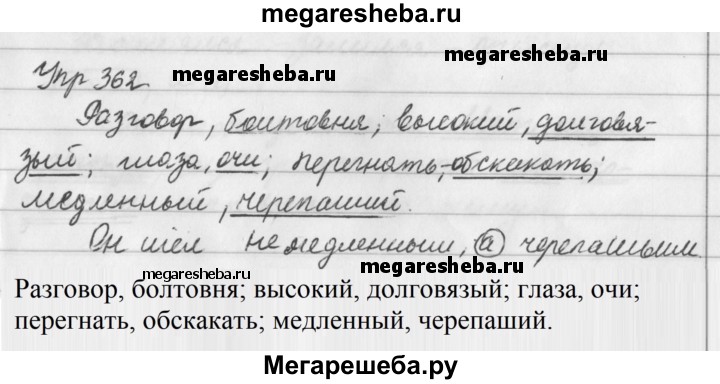 megaresheba.ru
Упр 362 megaresheba.ru megaresheba.ru
Разговор, болтовня; высокий, долговя-
зый; глаза, очи; перегнать, обскакать;
медленный, черепаший.
Он шёл не медленным, а черепашьим
megaresheba.ru megaresheba.ru
Разговор, болтовня; высокий, долговязый; глаза, очи;
перегнать, обскакать; медленный, черепаший.
Мегарешеба.ру